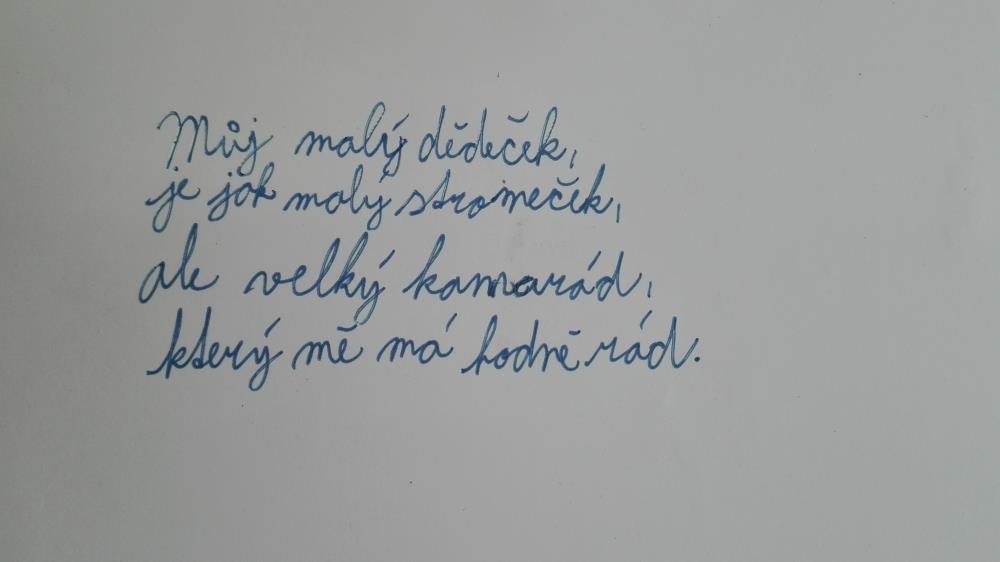 Můj malý dědeček,
je jak malý stromeček,
ale velký kamarád,
který mě má hodně rád.